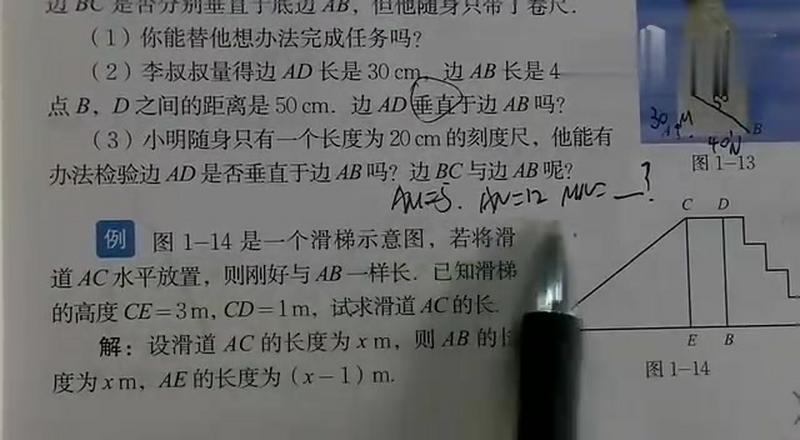 边 BC 是否分别垂直于底边 AB,但他随身只带了卷尺.
(1)你能替他想办法完成任务吗?
(2)李叔叔量得边 AD 长是 30 cm,边 AB 长是 4
点 B,D 之间的距离是 50 cm. 边 AD 垂直于边 AB 吗?
(3)小明随身只有一个长度为 20 cm 的刻度尺,他能有
办法检验边 AD 是否垂直于边 AB 吗?边 BC 与边 AB 呢?
AM=5. AN=12 MN=__?
30 A 9 M
50
40 N B
图 1-13
例 图 1-14 是一个滑梯示意图,若将滑
道 AC 水平放置,则刚好与 AB 一样长. 已知滑梯
的高度 CE=3 m,CD=1 m,试求滑道 AC 的长.
解:设滑道 AC 的长度为 x m,则 AB 的长
度为 x m,AE 的长度为(x-1)m.
C D
E B
图 1-14